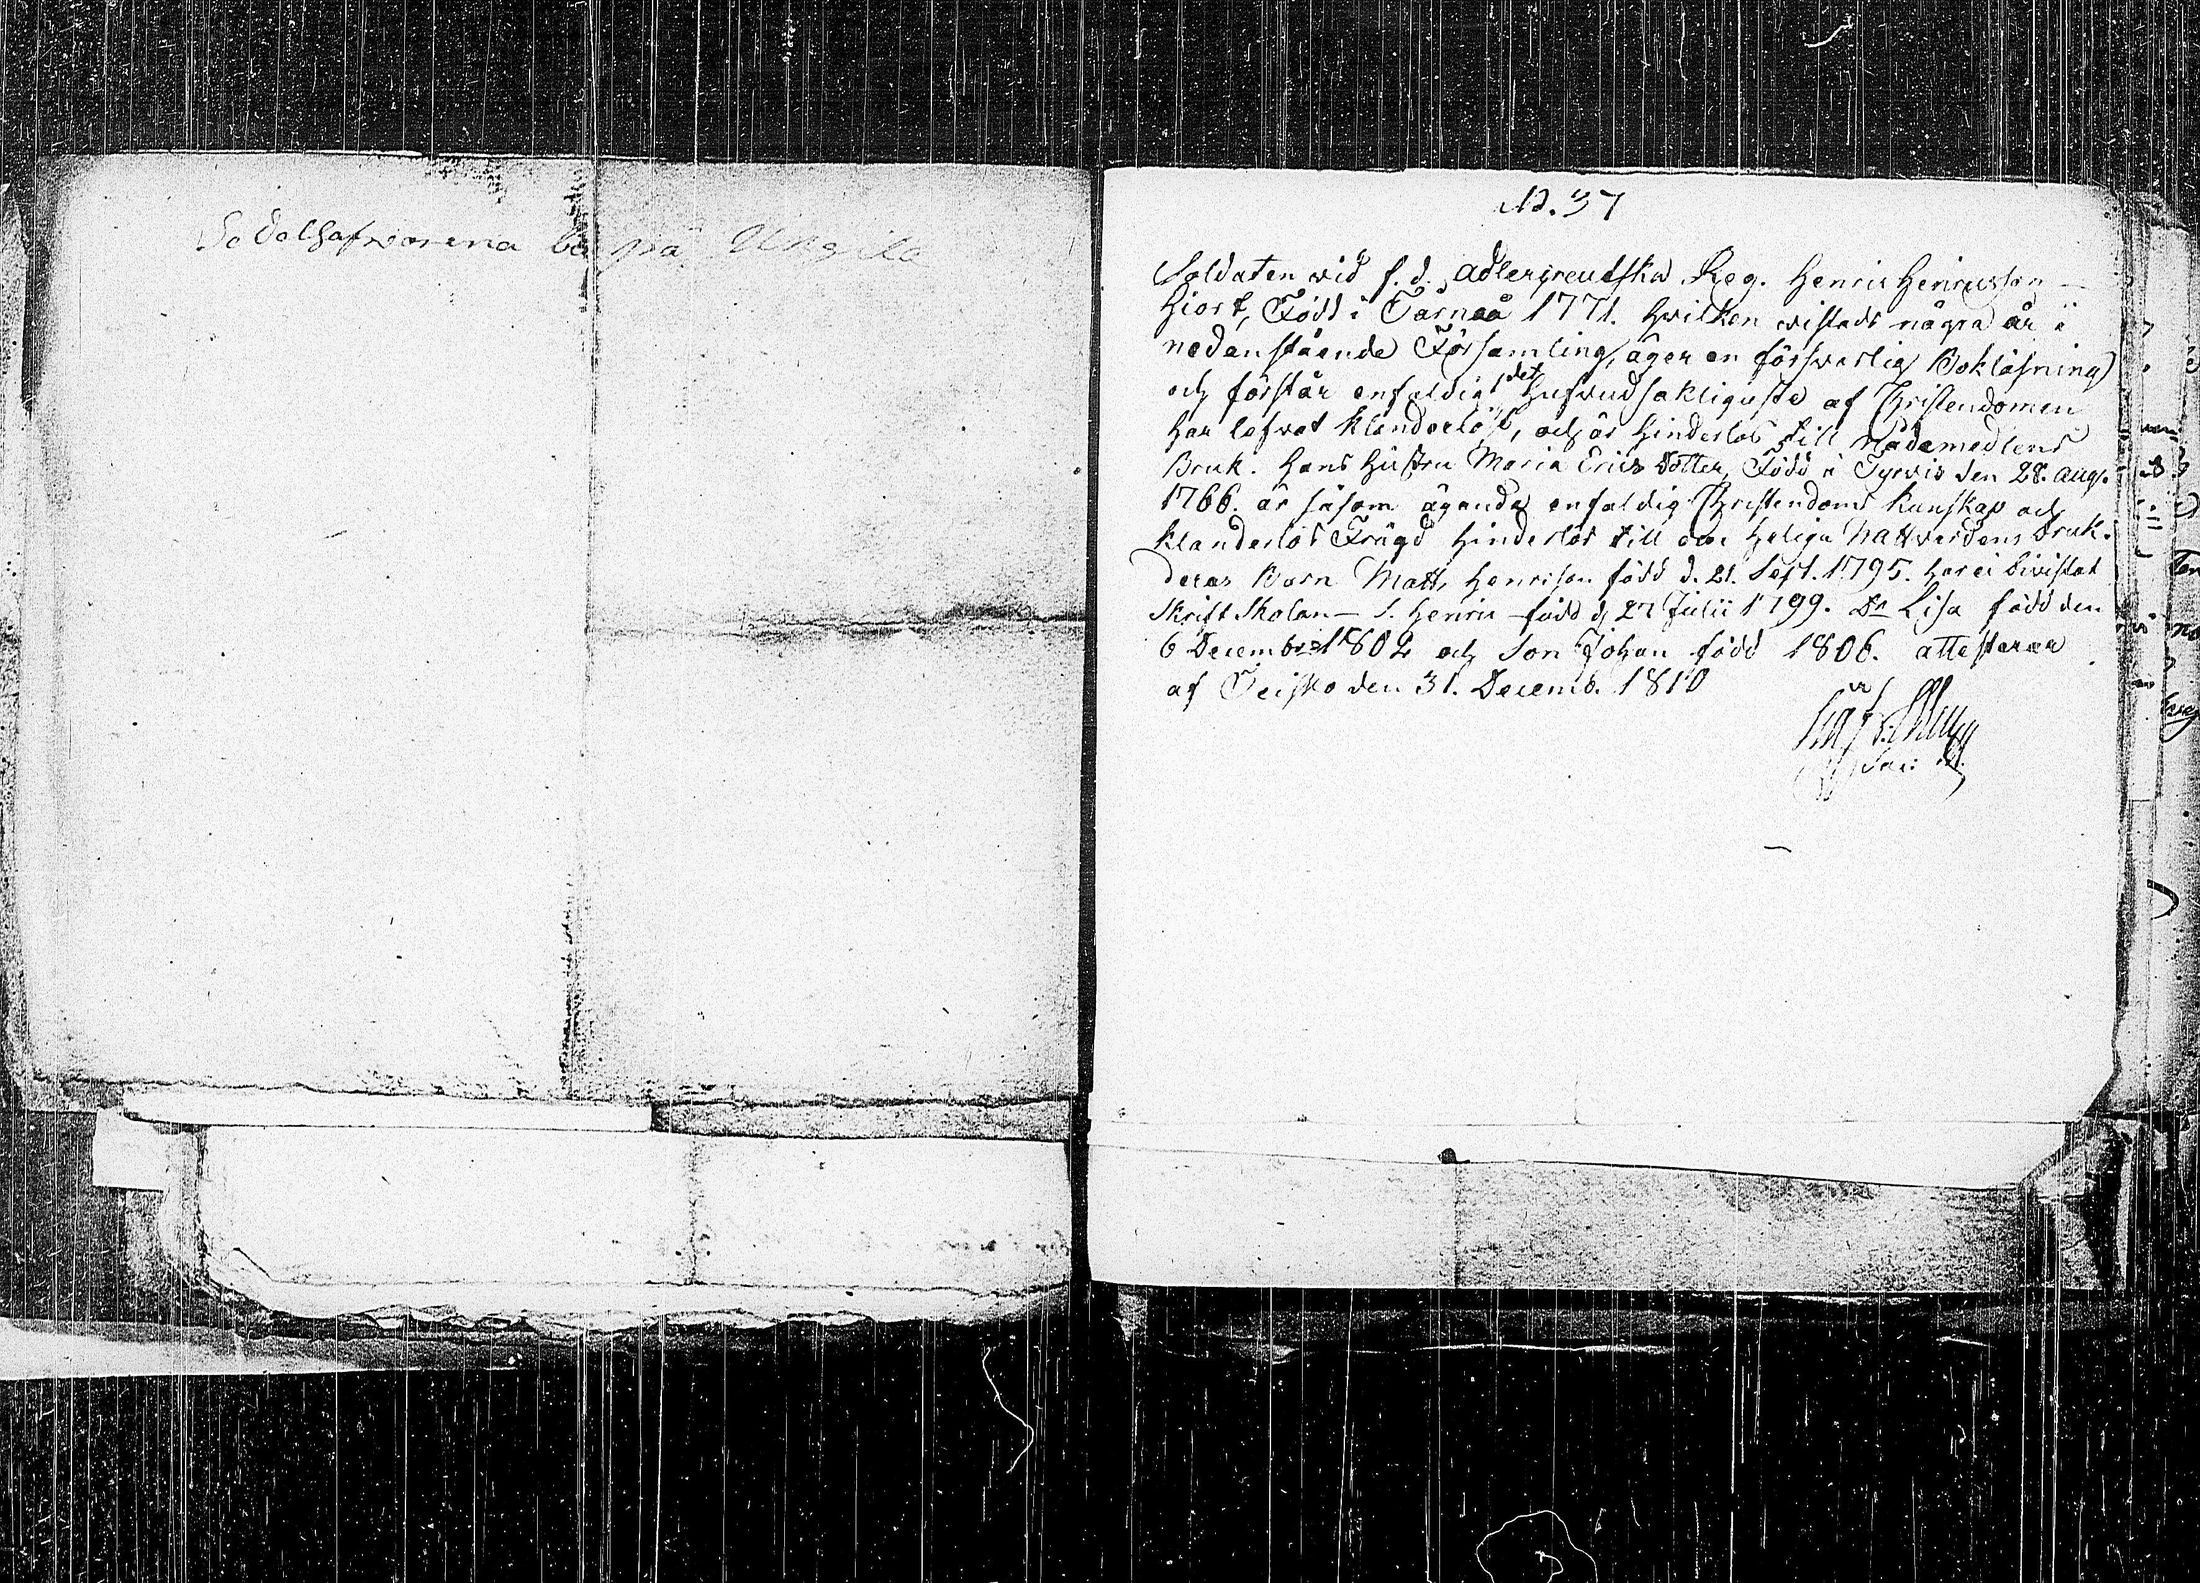 Sedelhafwarena bo på Ungila
No. 37
Soldaten wid f. d. Adlercreutska Reg. Henric Henricsson
Hiort, Född i Tarnaå 1771. Hvilken vistads några år i
nedanstående Församling, äger en försvarlig Bokläsning
och förstår enfaldigt det Hufvudsakligaste af Christendomen
har lefvat klanderlöst, och är hinderlös till Nådemedlens
Bruk. Hans Hustru Maria Erics dotter, Född i Tyrvis den 28. Aug.
1766. är såsom ägande enfaldig Christendoms kunskap och
klanderlös Frägd hinderlös till den Heliga Nattvardens bruk.
deras Barn Matts Henricson född d. 21. Sept. 1795. har ei bivistat
Skrift Skolan — S. Henric född d. 27 Julii 1799. Dr Lisa född den
6 Decembr 1802 och Son Johan född 1806. attesterar
af Teisko den 31. Decemb. 1810